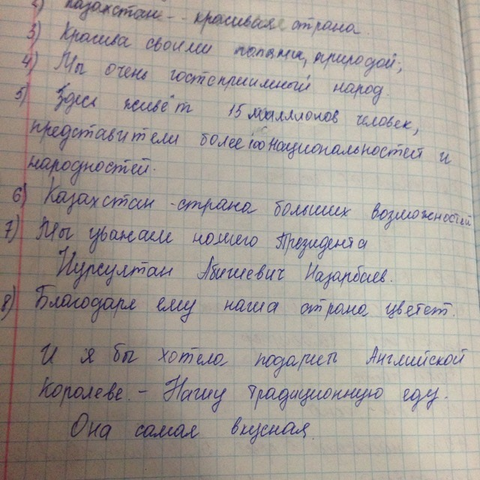 2) Казахстан - красивая страна
3) Красива своими полями, природой;
4) Мы очень гостеприимный народ
5) Здесь живёт 15 миллионов человек,
представители более 100 национальностей и
народностей.
6) Казахстан - страна больших возможностей
7) Мы уважаем нашего Президента
Нурсултан Абишевич Назарбаев.
8) Благодаря ему наша страна цветет.
И я бы хотела подарить Английской
Королеве. - Нашу традиционную еду.
Она самая вкусная.